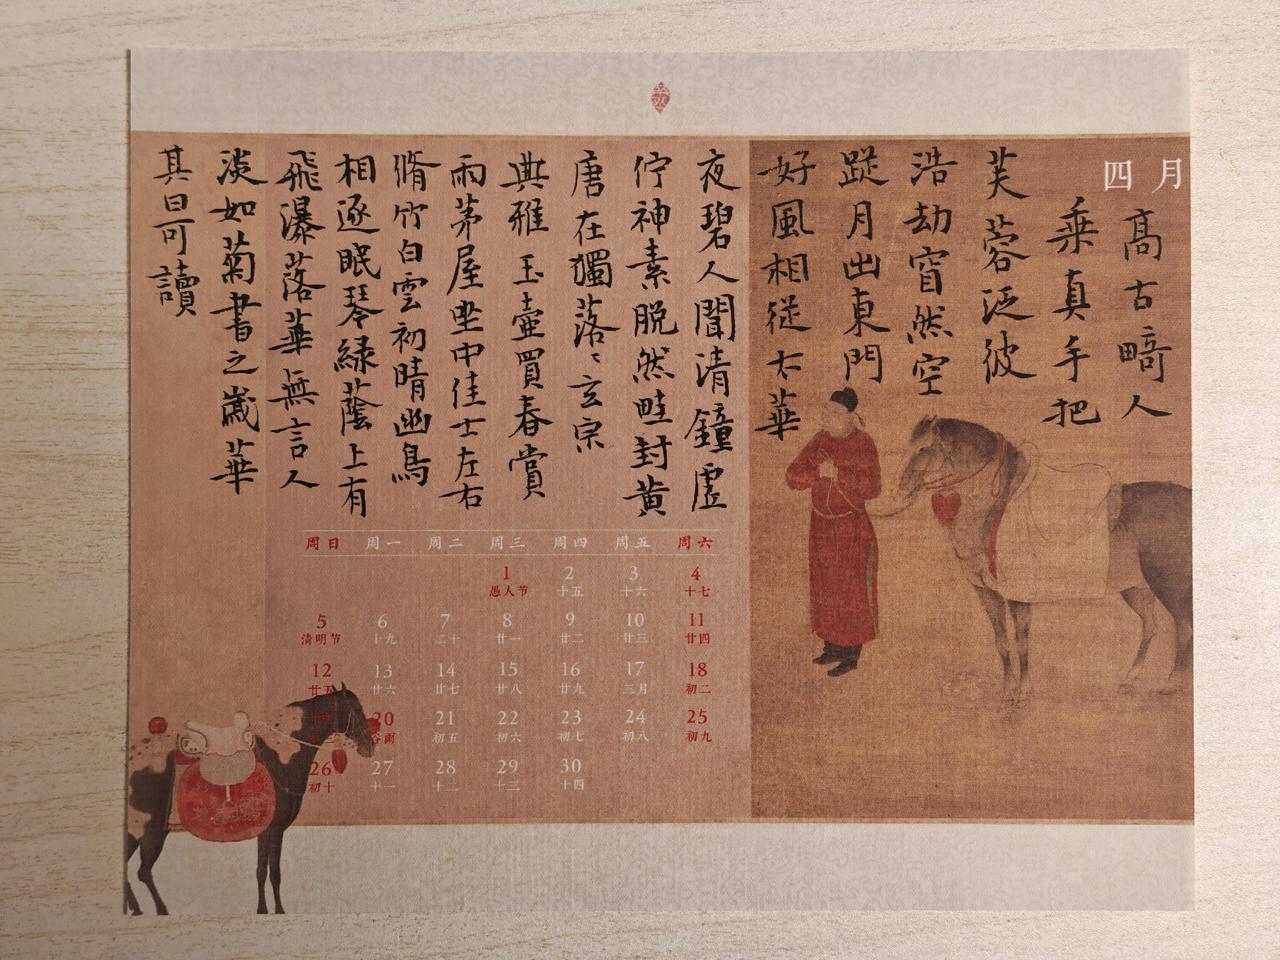 四月
高古畸人
乘真手把
芙蓉泛彼
浩劫窅然空
蹤月出東門
好風相從太華
夜碧人聞清鐘虛
佇神素脱然畦封黄
唐在獨落〻玄宗
典雅玉壺買春賞
雨茅屋坐中佳士左右
脩竹白雲初晴幽鳥
相逐眠琴緑蔭上有
飛瀑落華無言人
淡如菊書之歲華
其曰可讀
周日 周一 周二 周三 周四 周五 周六
1 2 3 4
愚人节 十五 十六 十七
5 6 7 8 9 10 11
清明节 十九 二十 廿一 廿二 廿三 廿四
12 13 14 15 16 17 18
廿五 廿六 廿七 廿八 廿九 三月 初二
19 20 21 22 23 24 25
谷雨 初五 初六 初七 初八 初九
26 27 28 29 30
初十 十一 十二 十三 十四